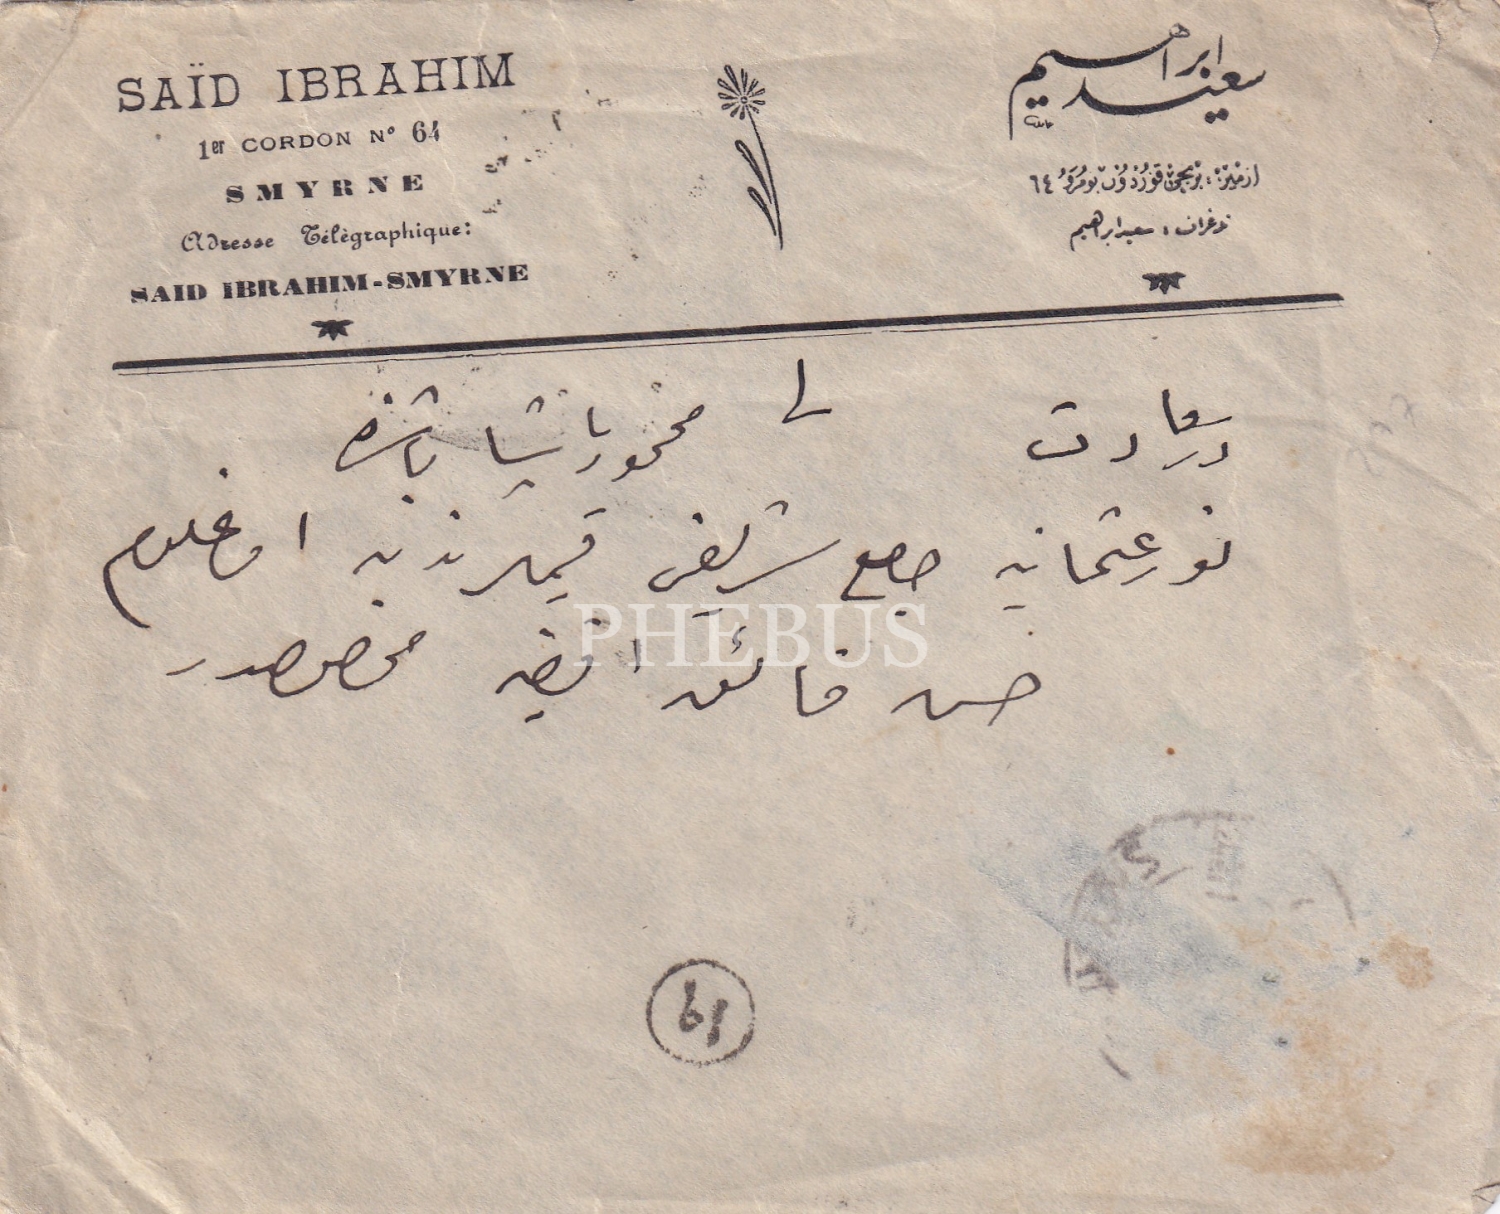 SAÏD IBRAHIM
1er CORDON Nº 64
SMYRNE
Adresse Télégraphique:
SAID IBRAHIM-SMYRNE
سعيد ابراهيم
ازمير: برنجى قوردون نومرو ٦٤
تلغراف: سعيد ابراهيم
درسعادت محمود پاشا باشنده
نور عثمانيه جامع شريفى
حسن فائق افندى يه مخصوصدر
PHEBUS